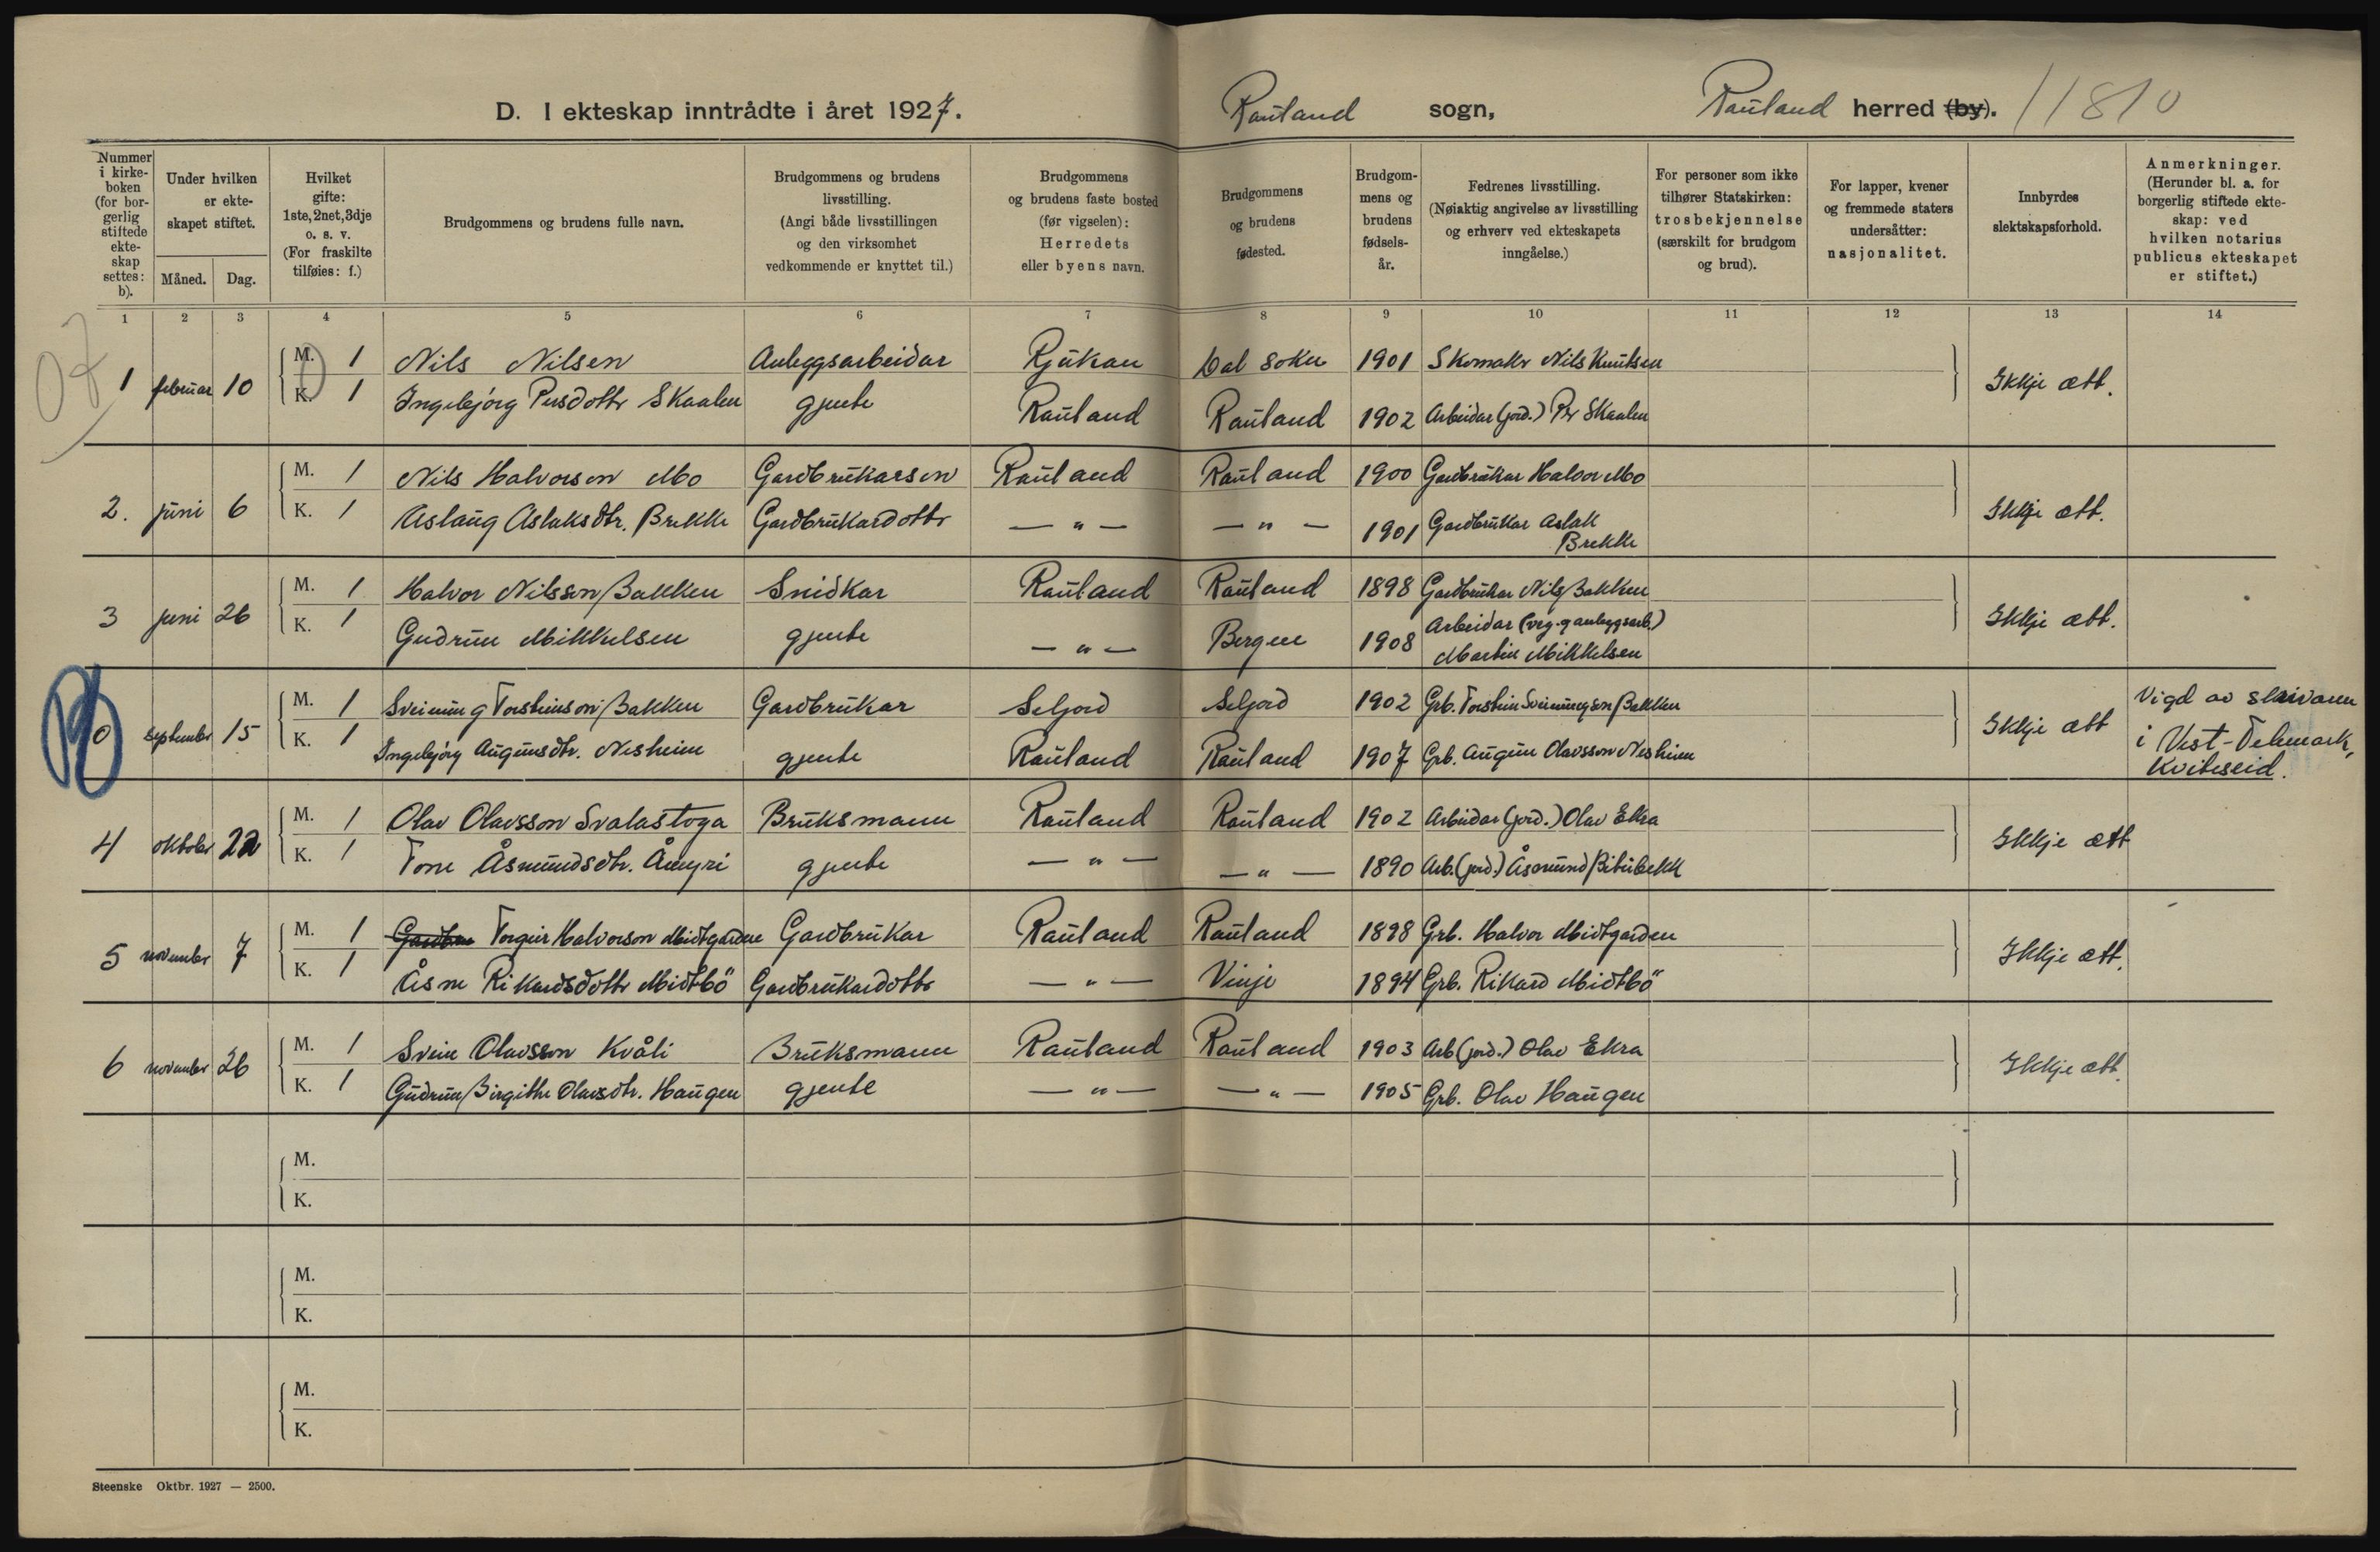 D. I ekteskap inntrådte i året 1927. Rauland sogn, Rauland herred (by). 11810
Nummer i kirkeboken (for borgerlig stiftede ekteskap settes: b).
Under hvilken er ekteskapet stiftet.
Måned. Dag.
Hvilket gifte: 1ste, 2net, 3dje o. s. v. (For fraskilte tilføies: f.)
Brudgommens og brudens fulle navn.
Brudgommens og brudens livsstilling. (Angi både livsstillingen og den virksomhet vedkommende er knyttet til.)
Brudgommens og brudens faste bosted (før vigselen): Herredets eller byens navn.
Brudgommens og brudens fødested.
Brudgommens og brudens fødselsår.
Fedrenes livsstilling. (Nøiaktig angivelse av livsstilling og erhverv ved ekteskapets inngåelse.)
For personer som ikke tilhører Statskirken: trosbekjennelse (særskilt for brudgom og brud).
For lapper, kvener og fremmede staters undersåtter: nasjonalitet.
Innbyrdes slektskapsforhold.
Anmerkninger. (Herunder bl. a. for borgerlig stiftede ekteskap: ved hvilken notarius publicus ekteskapet er stiftet.)
1 2 3 4 5 6 7 8 9 10 11 12 13 14
1 februar 10 M. 1 Nils Nilsen Anleggsarbeidar Rjukan Dal sokn 1901 Skomakr Nils Knutsen Ikkje ætt.
K. 1 Ingebjørg Persdottr Skaalen gjente Rauland Rauland 1902 Arbeidar (jord.) Per Skaalen
2. juni 6 M. 1 Nils Halvorson Mo Gardbrukarson Rauland Rauland 1900 Gardbrukar Halvor Mo Ikkje ætt.
K. 1 Aslaug Aslaksdtr. Brekke Gardbrukardottr — " — — " — 1901 Gardbrukar Aslak Brekke
3 juni 26 M. 1 Halvor Nilsson Bakken Snidkar Rauland Rauland 1898 Gardbrukar Nils Bakken Ikkje ætt.
K. 1 Gudrun Mikkelsen gjente — " — Bergen 1908 Arbeidar (veg- og anleggsarb.) Martin Mikkelsen
september 15 M. 1 Sveinung Torsteinson Bakken Gardbrukar Seljord Seljord 1902 Grb. Torstein Sveinungson Bakken Ikkje ætt Vigd av skrivaren
K. 1 Ingebjørg Augunsdtr. Nesheim gjente Rauland Rauland 1907 Grb. Augun Olavsson Nesheim i Vest-Telemark, Kviteseid.
4 oktober 22 M. 1 Olav Olavsson Svalastoga Bruksmann Rauland Rauland 1902 Arbeidar (jord.) Olav Ekra Ikkje ætt
K. 1 Tone Åsmundsdtr. Åmyri gjente — " — — " — 1890 Arb. (jord.) Åsmund Bitubekk
5 november 7 M. 1 Torgeir Halvorson Midtgarden Gardbrukar Rauland Rauland 1898 Grb. Halvor Midtgarden Ikkje ætt.
K. 1 Åsne Rikardsdottr Midtbö Gardbrukardottr — " — Vinje 1894 Grb. Rikard Midtbö
6 november 26 M. 1 Svein Olavsson Kvåli Bruksmann Rauland Rauland 1903 Arb (jord.) Olav Ekra Ikkje ætt.
K. 1 Gudrun Birgithe Olavsdtr. Haugen gjente — " — — " — 1905 Grb. Olav Haugen
M.
K.
M.
K.
M.
K.
Steenske Oktbr. 1927 — 2500.